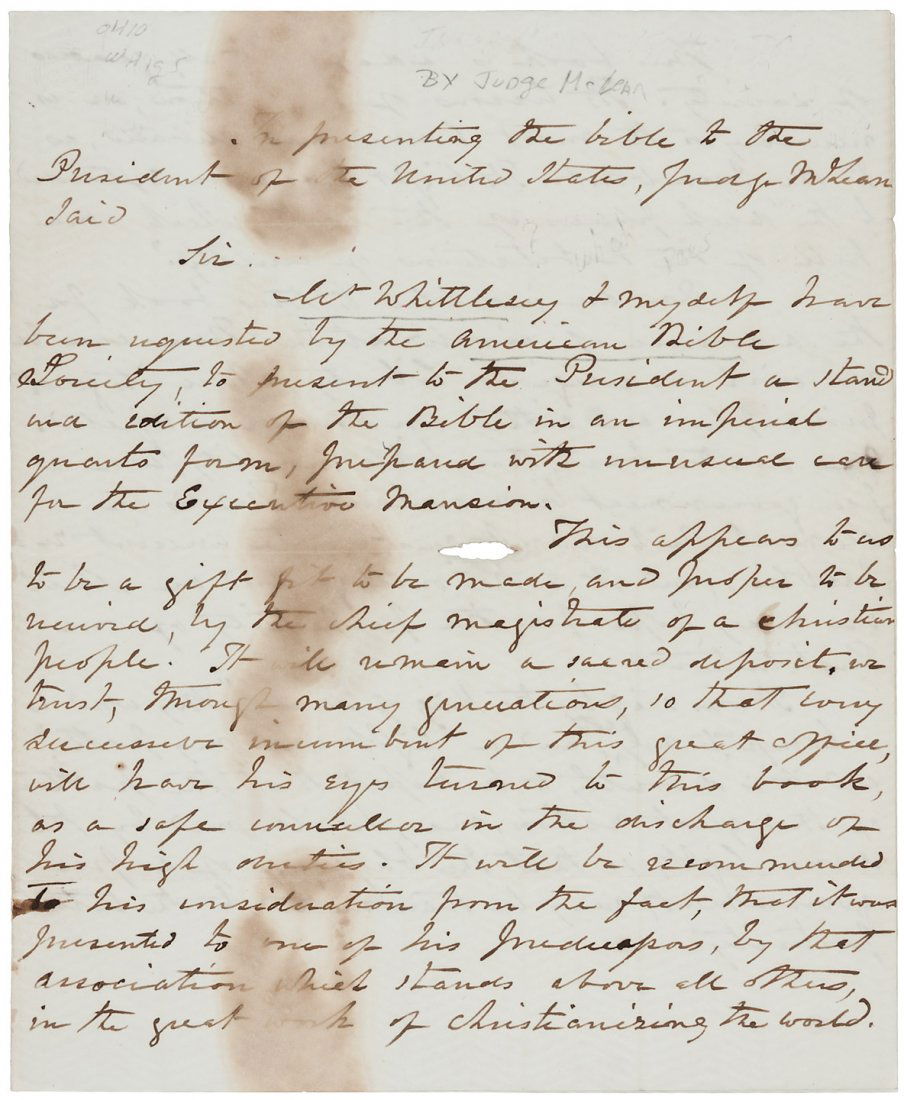 OHIO
WHIGS
BY Judge McLean
In presenting the bible to the
President of the United States, Judge McLean
said
Sir
Mr Whittlesey & myself have
been requested by the American Bible
Society, to present to the President a stand
ard edition of the Bible in an imperial
quarto form, prepared with unusual care
for the Executive Mansion.
This appears to us
to be a gift fit to be made, and proper to be
received, by the chief magistrate of a christian
people. It will remain a sacred deposit, we
trust, through many generations, so that every
successive incumbent of this great office,
will have his eyes turned to this book,
as a safe counsellor in the discharge of
his high duties. It will be recommended
to his consideration from the fact, that it was
presented to one of his predecessors, by that
association which stands above all others,
in the great work of christianizing the world.